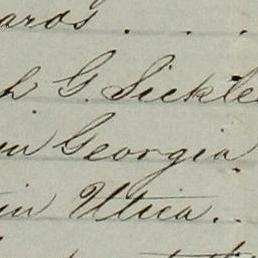 ards . . .
h G. Sickle
in Georgia
in Utica. .